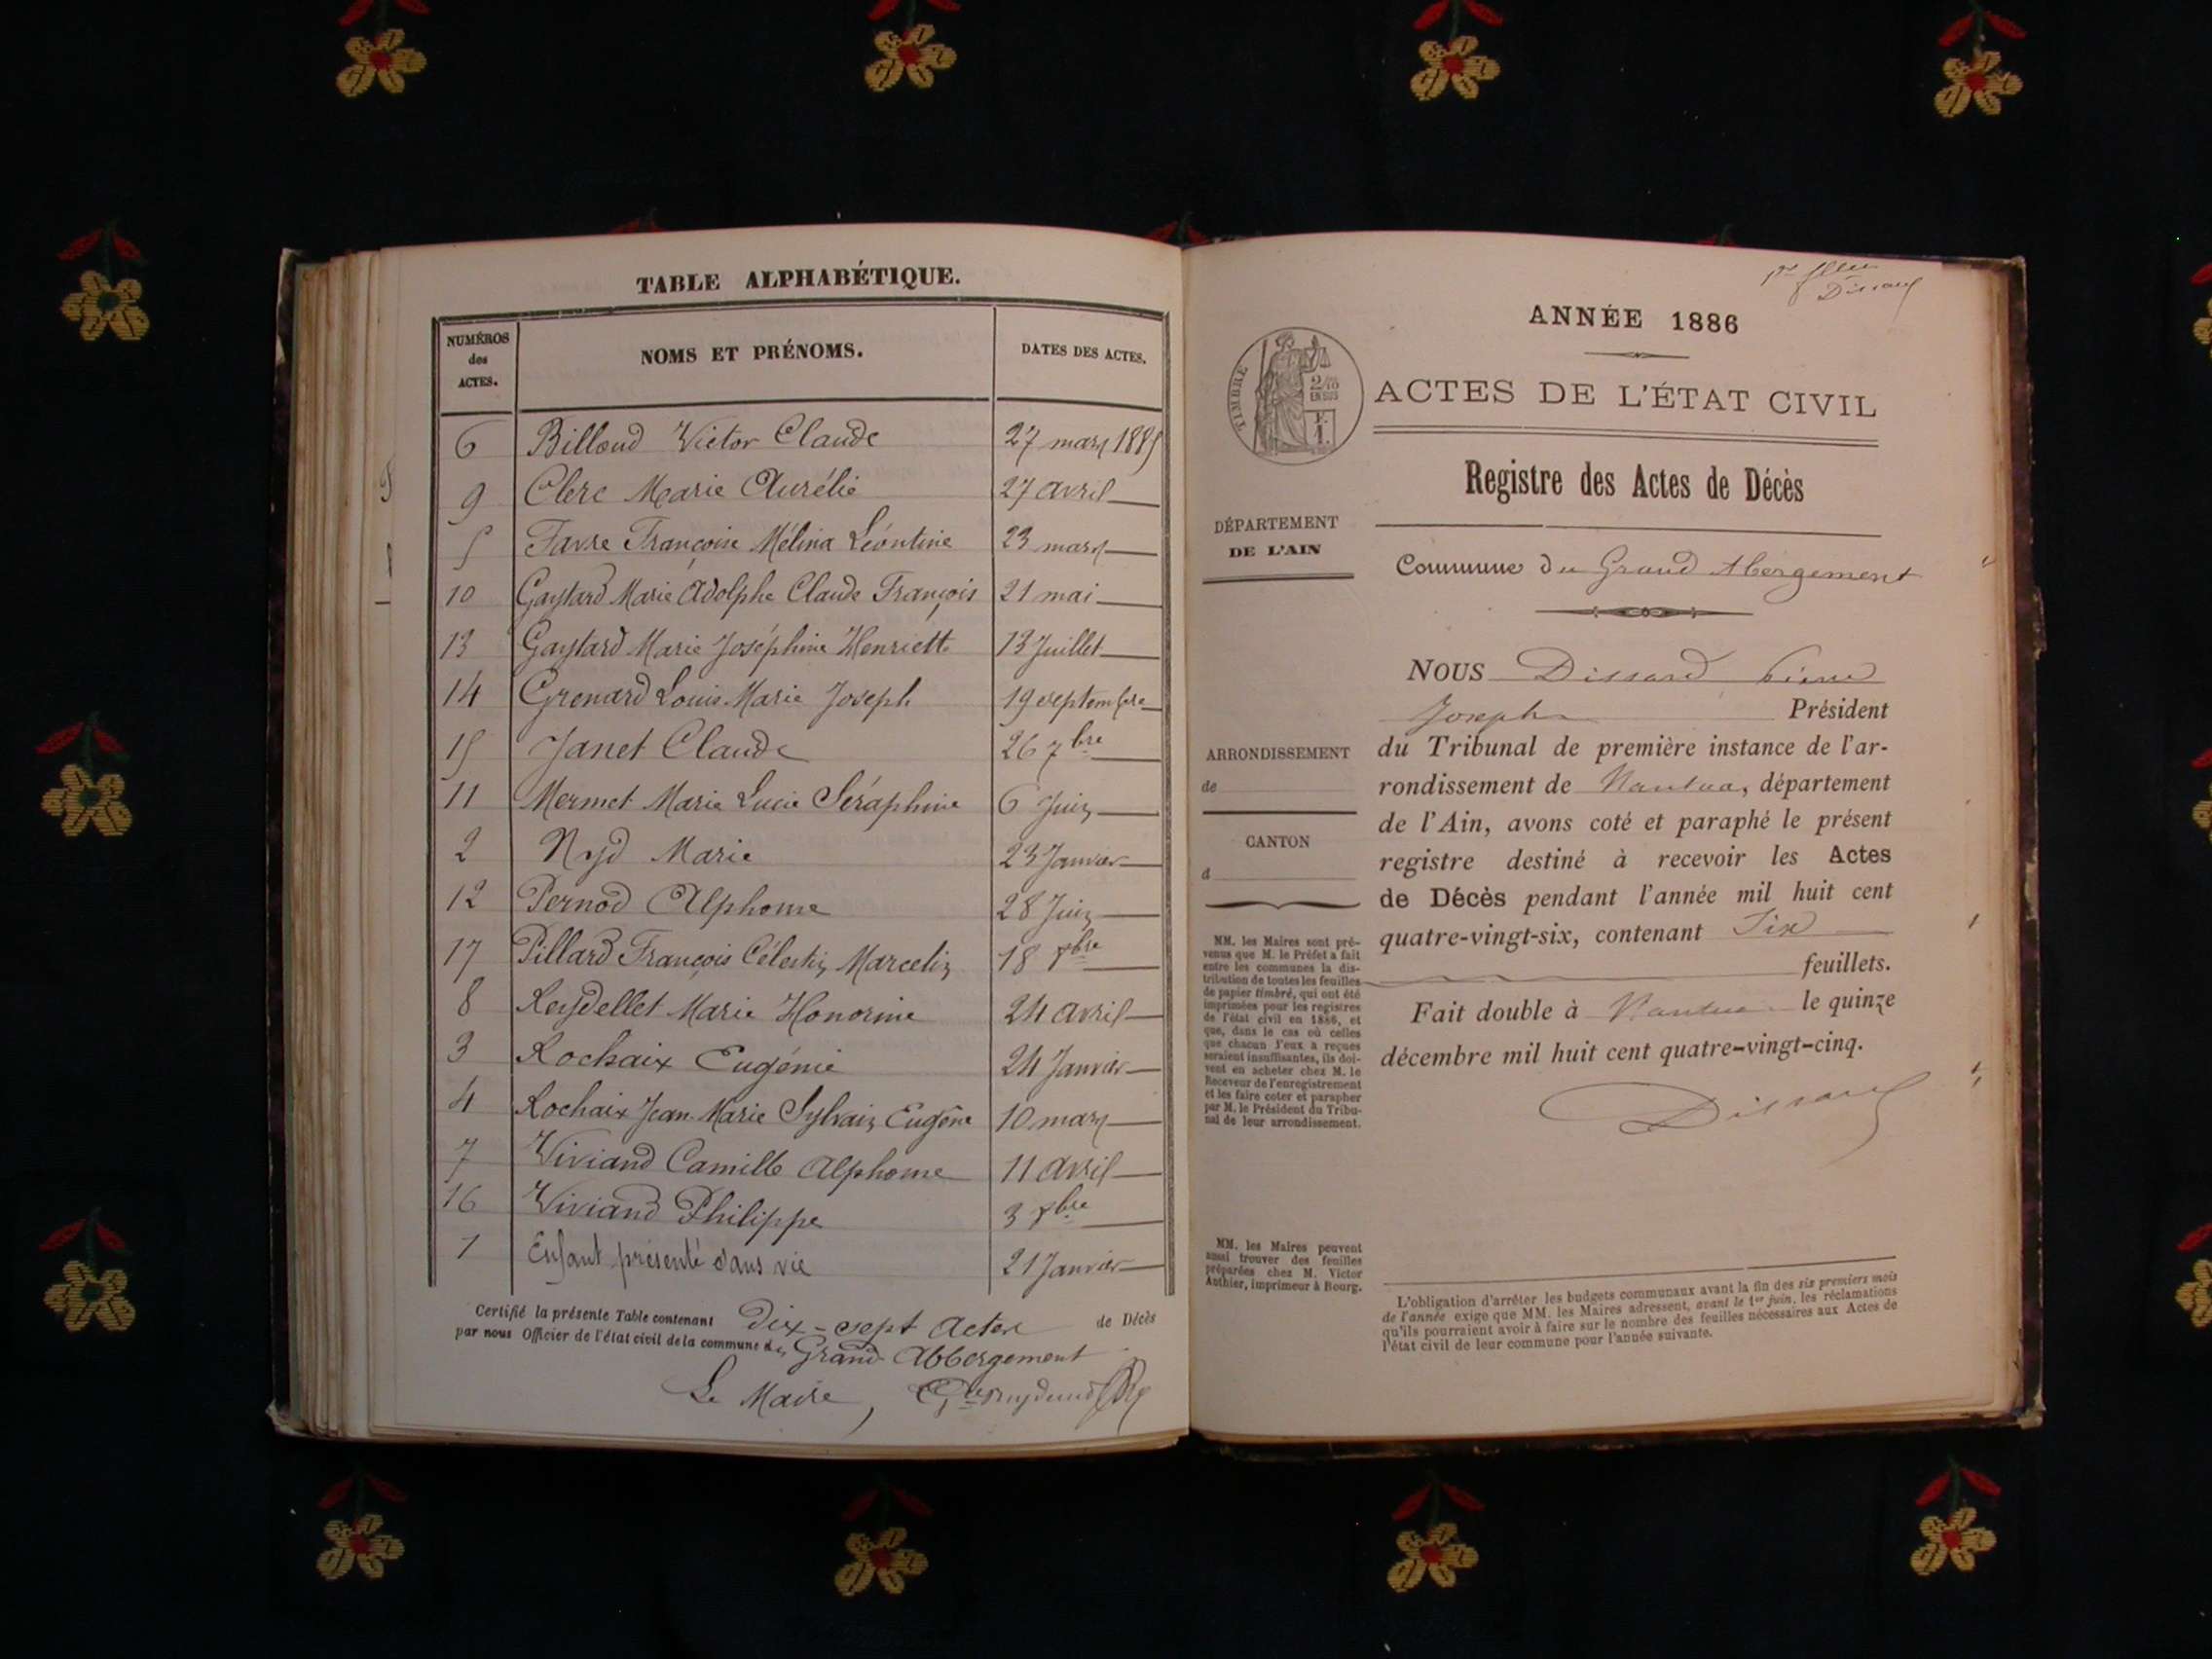 TABLE ALPHABÉTIQUE.
NUMÉROS des ACTES. NOMS ET PRÉNOMS. DATES DES ACTES.
6 Billoud Victor Claude 27 mars 1885
9 Clerc Marie Aurélie 27 avril
5 Favre Françoise Mélina Léontine 23 mars
10 Gaystard Marie Adolphe Claude François 21 mai
13 Gaystard Marie Joséphine Henriette 13 Juillet
14 Grenard Louis Marie Joseph 19 septembre
15 Janet Claude 26 7bre
11 Mermet Marie Lucie Séraphine 6 Juin
2 Nyd Marie 23 Janvier
12 Pernod Alphonse 28 Juin
17 Pillard François Célestin Marcelin 18 8bre
8 Reydellet Marie Honorine 24 avril
3 Rochaix Eugénie 24 Janvier
4 Rochaix Jean-Marie Sylvain Eugène 10 mars
7 Viviand Camille Alphonse 11 avril
16 Viviand Philippe 3 8bre
1 Enfant présenté sans vie 21 Janvier
Certifié la présente Table contenant dix-sept Actes de Décès
par nous Officier de l'état civil de la commune du Grand Abbergement
Le Maire,
Dissard
ANNÉE 1886
TIMBRE
2/10
EN SUS
ACTES DE L'ÉTAT CIVIL
Registre des Actes de Décès
DÉPARTEMENT
DE L'AIN
Commune du Grand Abergement
NOUS Dissard Pierre
Joseph Président
du Tribunal de première instance de l'ar-
rondissement de Nantua, département
de l'Ain, avons coté et paraphé le présent
registre destiné à recevoir les Actes
de Décès pendant l'année mil huit cent
quatre-vingt-six, contenant Six
feuillets.
Fait double à Nantua le quinze
décembre mil huit cent quatre-vingt-cinq.
Dissard
ARRONDISSEMENT
de
CANTON
d
MM. les Maires sont pré-
venus que M. le Préfet a fait
entre les communes la dis-
tribution de toutes les feuilles
de papier timbré, qui ont été
imprimées pour les registres
de l'état civil en 1886, et
que, dans le cas où celles
que chacun d'eux a reçues
seraient insuffisantes, ils doi-
vent en acheter chez M. le
Receveur de l'enregistrement
et les faire coter et parapher
par M. le Président du Tribu-
nal de leur arrondissement.
MM. les Maires peuvent
aussi trouver des feuilles
préparées chez M. Victor
Authier, imprimeur à Bourg.
L'obligation d'arrêter les budgets communaux avant la fin des six premiers mois
de l'année exige que MM. les Maires adressent, avant le 1er juin, les réclamations
qu'ils pourraient avoir à faire sur le nombre des feuilles nécessaires aux Actes de
l'état civil de leur commune pour l'année suivante.